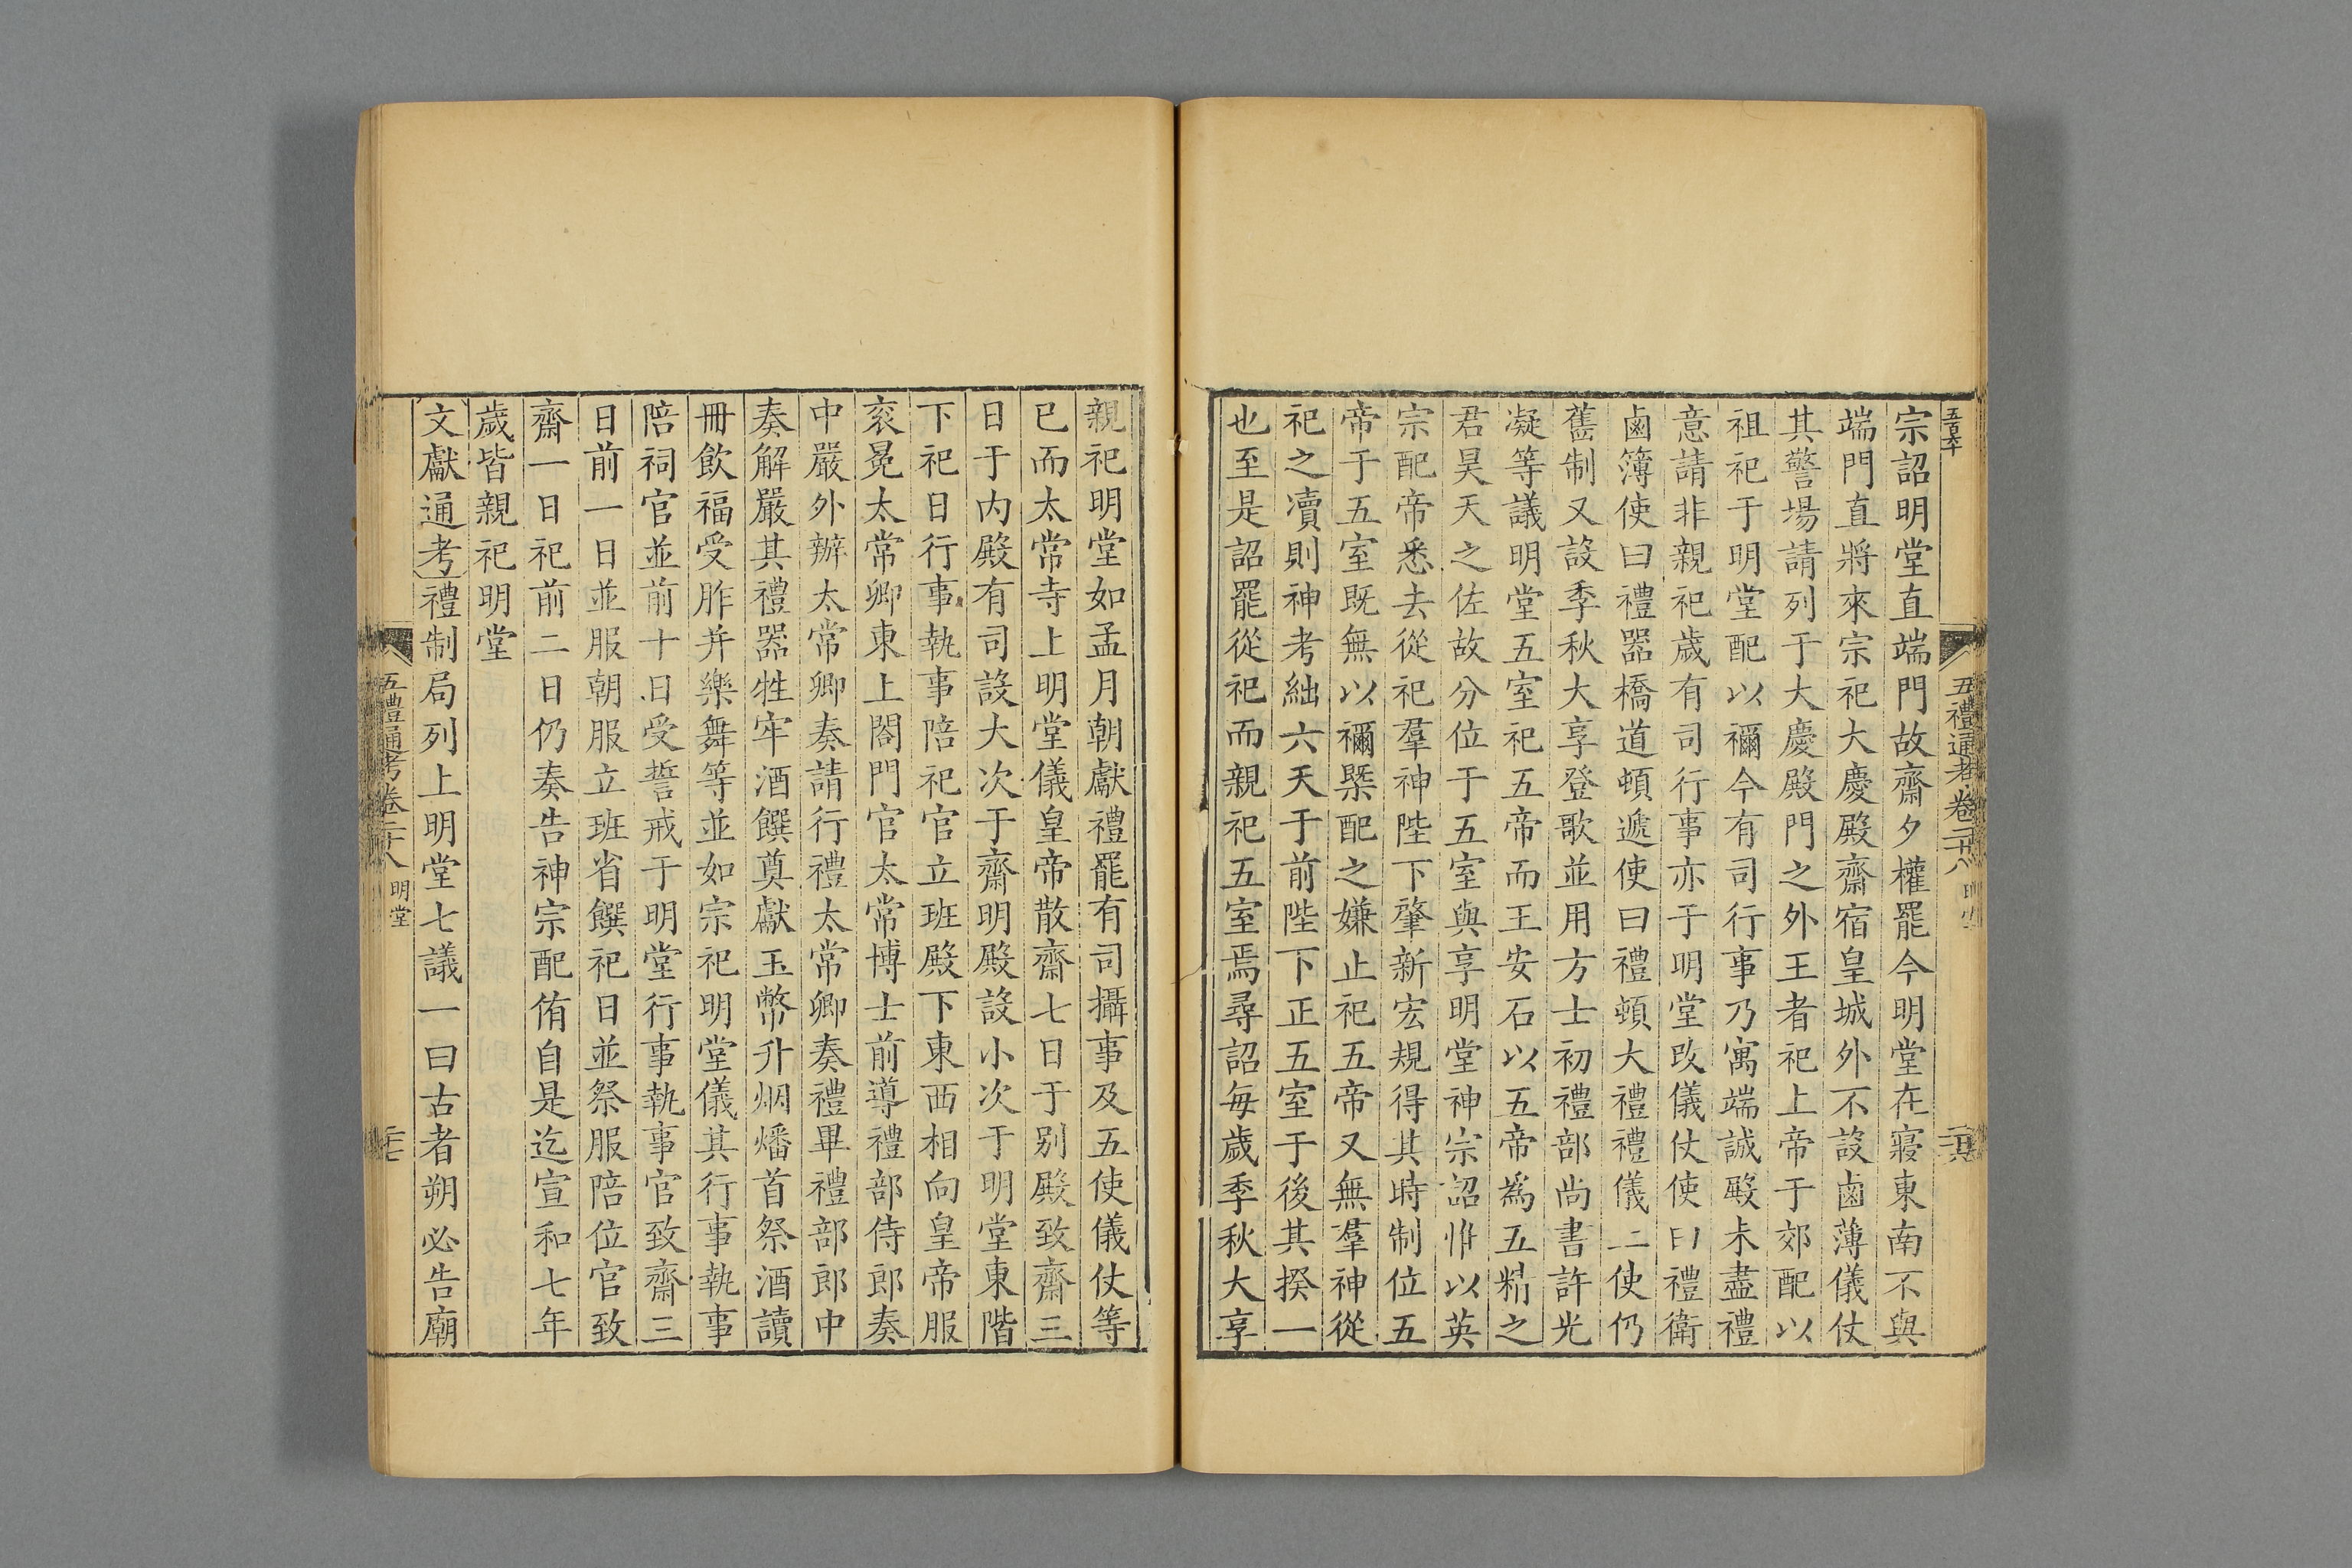 五禮通考卷二十八
宗詔明堂直端門故齋夕權罷今明堂在寢東南不與
端門直將來宗祀大慶殿齋宿皇城外不設鹵薄儀仗
其警場請列于大慶殿門之外王者祀上帝于郊配以
祖祀于明堂配以禰今有司行事乃寓端誠殿未盡禮
意請非親祀歲有司行事亦于明堂改儀仗使曰禮衛
鹵簿使曰禮器橋道頓遞使曰禮頓大禮禮儀二使仍
舊制又設季秋大享登歌並用方士初禮部尚書許光
凝等議明堂五室祀五帝而王安石以五帝為五精之
君昊天之佐故分位于五室與享明堂神宗詔惟以英
宗配帝悉去從祀羣神陛下肇新宏規得其時制位五
帝于五室既無以禰槩配之嫌止祀五帝又無羣神從
祀之凟則神考絀六天于前陛下正五室于後其揆一
也至是詔罷從祀而親祀五室焉尋詔每歲季秋大享
親祀明堂如孟月朝獻禮罷有司攝事及五使儀仗等
已而太常寺上明堂儀皇帝散齋七日于别殿致齋三
日于内殿有司設大次于齋明殿設小次于明堂東階
下祀日行事執事陪祀官立班殿下東西相向皇帝服
衮冕太常卿東上閤門官太常博士前導禮部侍郎奏
中嚴外辦太常卿奏請行禮太常卿奏禮畢禮部郎中
奏解嚴其禮器牲牢酒饌奠獻玉幣升烟燔首祭酒讀
冊飲福受胙并樂舞等並如宗祀明堂儀其行事執事
陪祠官並前十日受誓戒于明堂行事執事官致齋三
日前一日並服朝服立班省饌祀日並祭服陪位官致
齋一日祀前二日仍奏告神宗配侑自是迄宣和七年
歲皆親祀明堂
文獻通考禮制局列上明堂七議一曰古者朔必告廟
五禮通考卷二十八 明堂